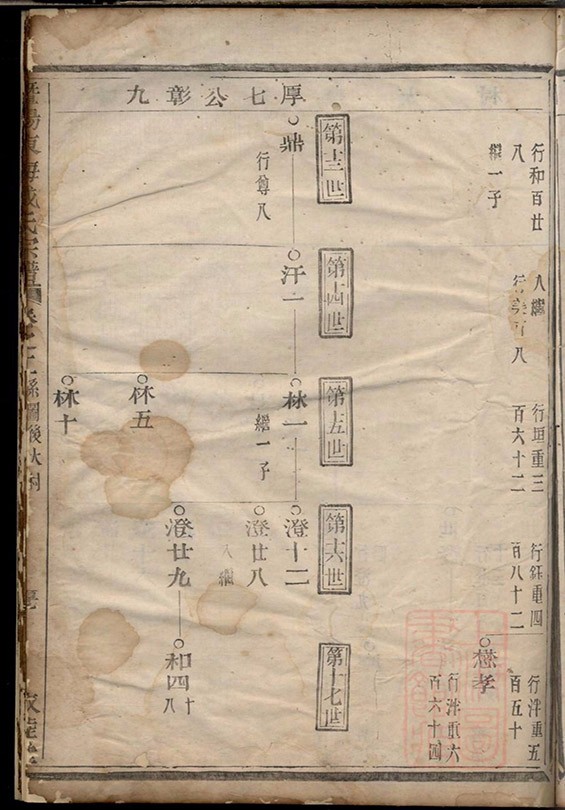 行和百廿
八
繼一子
入繼
百八
行垣重三
百六十二
行鉌重四
百八十二
行泮重五
百五十
懋孝
行泮重六
百六十四
厚七公彰九
第十三世
第十四世
第十五世
第十六世
第十七世
鼎
行尊八
汗一
林一
繼一子
休五
林十
澄十二
澄廿八
入繼
澄廿九
和四十
八
東海
氏宗譜
系圖後大